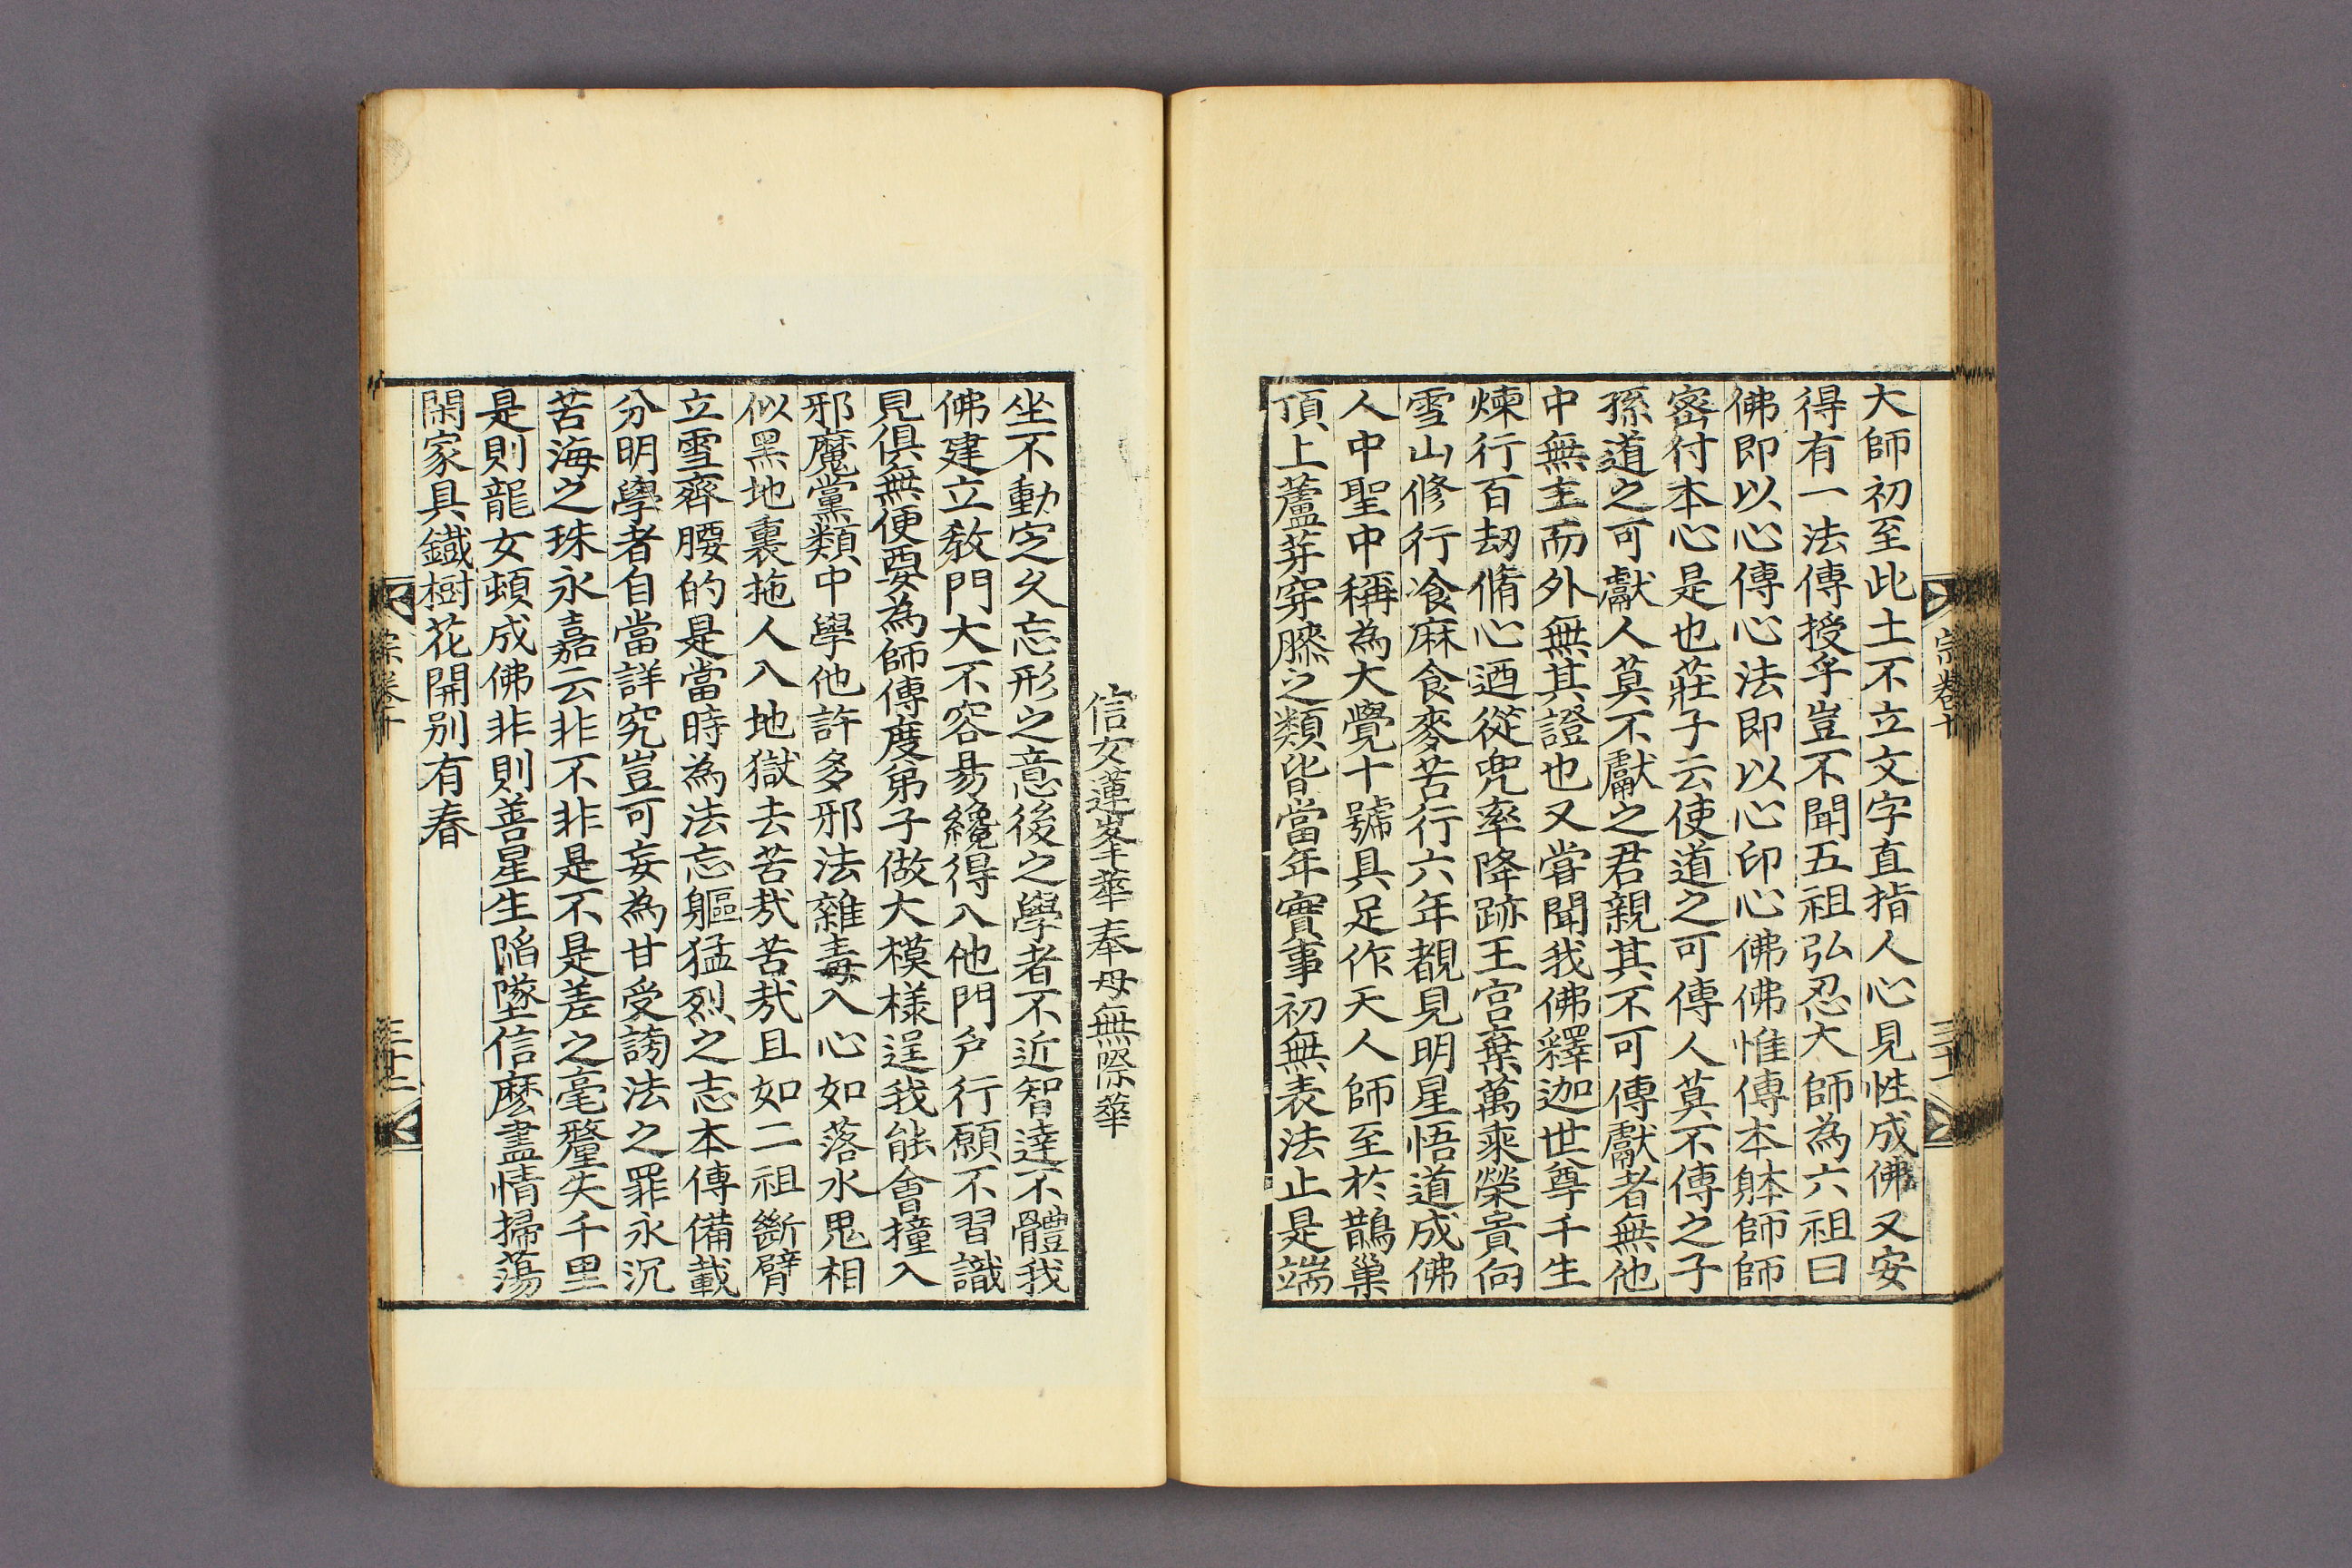 宗卷十
三十一
大師初至此土不立文字直指人心見性成佛又安
得有一法傳授乎豈不聞五祖弘忍大師為六祖曰
佛即以心傳心法即以心印心佛佛惟傳本躰師師
密付本心是也莊子云使道之可傳人莫不傳之子
孫道之可獻人莫不獻之君親其不可傳獻者無他
中無主而外無其證也又甞聞我佛釋迦世尊千生
煉行百刼脩心迺從兜率降跡王宫棄萬乘榮貴向
雪山修行飡麻食麥苦行六年覩見明星悟道成佛
人中聖中稱為大覺十號具足作天人師至於鵲巢
頂上蘆芽穿膝之類皆當年實事初無表法止是端
信女蓮峯華奉母無際華
坐不動定久忘形之意後之學者不近智達不體我
佛建立教門大不容易纔得入他門户行願不習識
見俱無便要為師傳度弟子做大模樣逞我能會撞入
邪魔黨類中學他許多邪法雜毒入心如落水鬼相
似黑地裏拖人入地獄去苦㢤苦㢤且如二祖斷臂
立雪齊腰的是當時為法忘軀猛烈之志本傳備載
分明學者自當詳究豈可妄為甘受謗法之罪永沉
苦海之珠永嘉云非不非是不是差之毫釐失千里
是則龍女頓成佛非則善星生陷墜信麽盡情掃蕩
閑家具鐵樹花開别有春
宗卷十
三十二